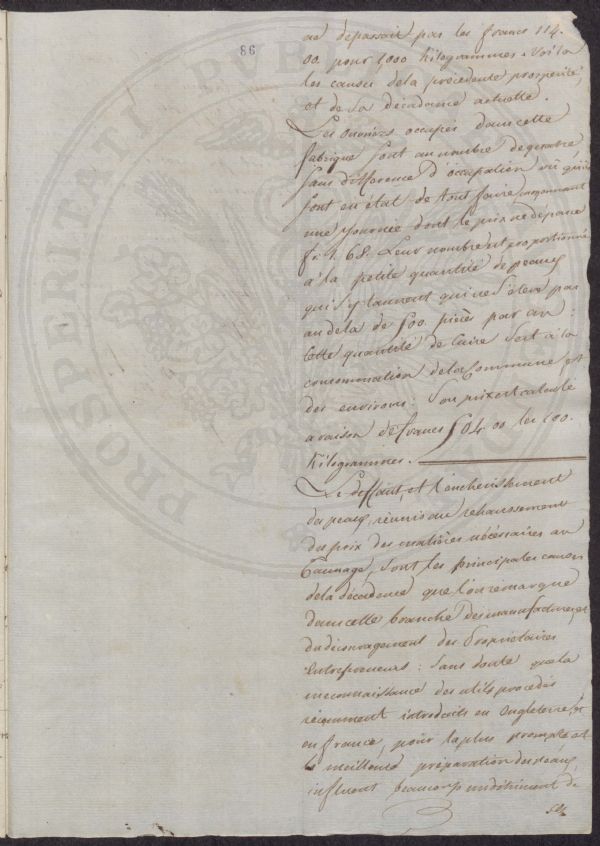 86
ne dépassait pas les francs 114.
00. pour 1,000 Kilogrammes. Voila
les causes de la précédente prosperité,
et de sa décadence actuelle.
Les Ouvriers occupés dans cette
fabrique sont au nombre de quatre
sans difference d'occupation vu qu'ils
sont en état de tout faire moyennant
une journée dont le prix ne dépasse
fr. 1. 68. Leur nombre est proportionné
à la petite quantité de peaux
qui s'y tannent qui ne s'éleve pas
au dela de 500. pièces par an:
Cette quantité de Cuirs sert à la
consommation de la Commune, et
des environs: Son prix est calculé
a raison de francs 504. 00 les 100.
Kilogrammes.
Le deffaut, et l'encherissement
des peaux, réunis au rehaussement
des prix des matières nécessaires au
Tannage, sont les principales causes
de la décadence que l'on remarque
dans cette branche des manufactures, et
du découragement des Propriétaires
Entrepreneurs: Sans doute que la
meconnaissance des utils procedés
récemment introduits en Angleterre, et
en france, pour la plus prompte et
la meilleure préparation des peaux,
influent beaucoup au détriment de
PROSPERITATI PVBLI